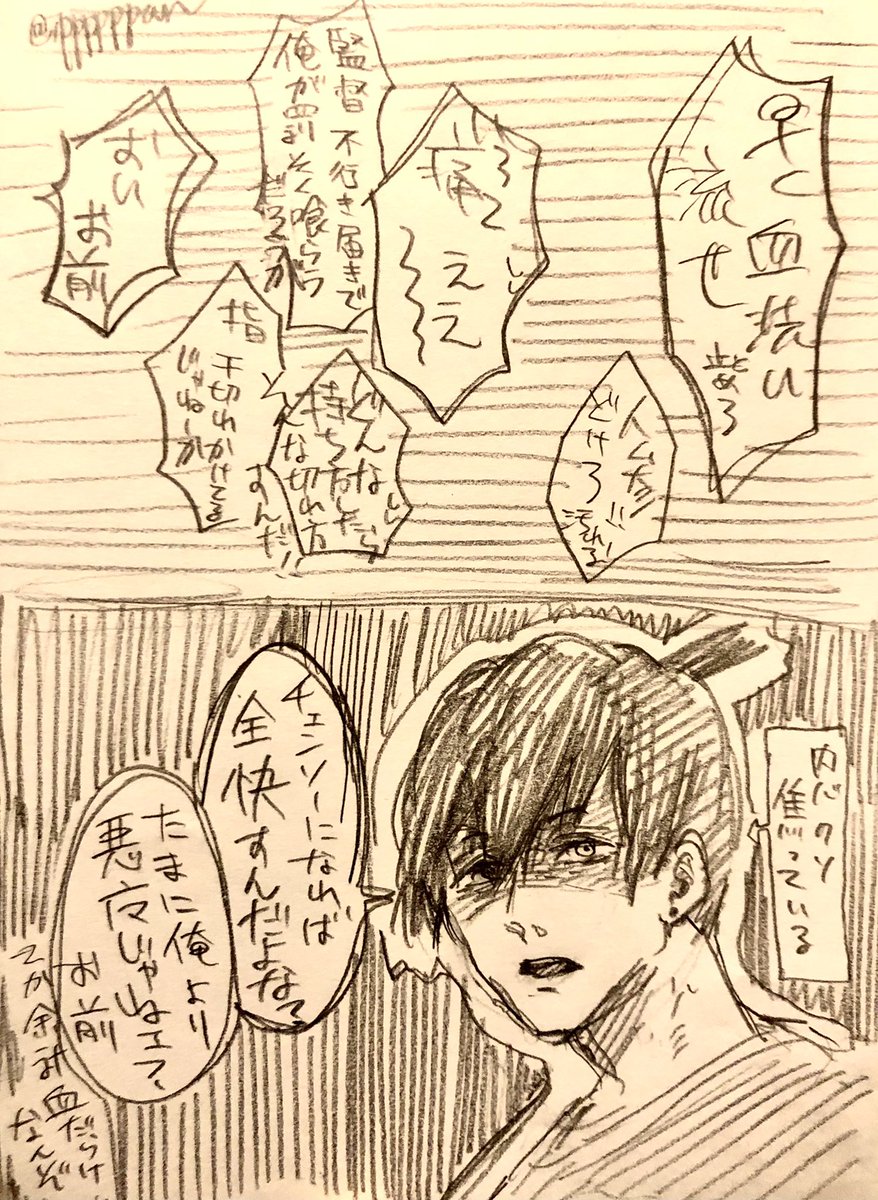 @ppppppan
早く血拭い
流せ
止めろ
どけろ
いってぇ
痛ええ
〜〜
監督不行き届きで
俺が四の五の喰らう
だろうが
おい
お前
どんな
持ち方したら
そんな切れ方
すんだ!
指
千切れかけてる
じゃねーか
内心クソ
焦っている
チェンソーになれば
全快すんだよな?
たまに俺より
悪魔じゃねェ?
お前
てか余計血だらけ
なんぞ